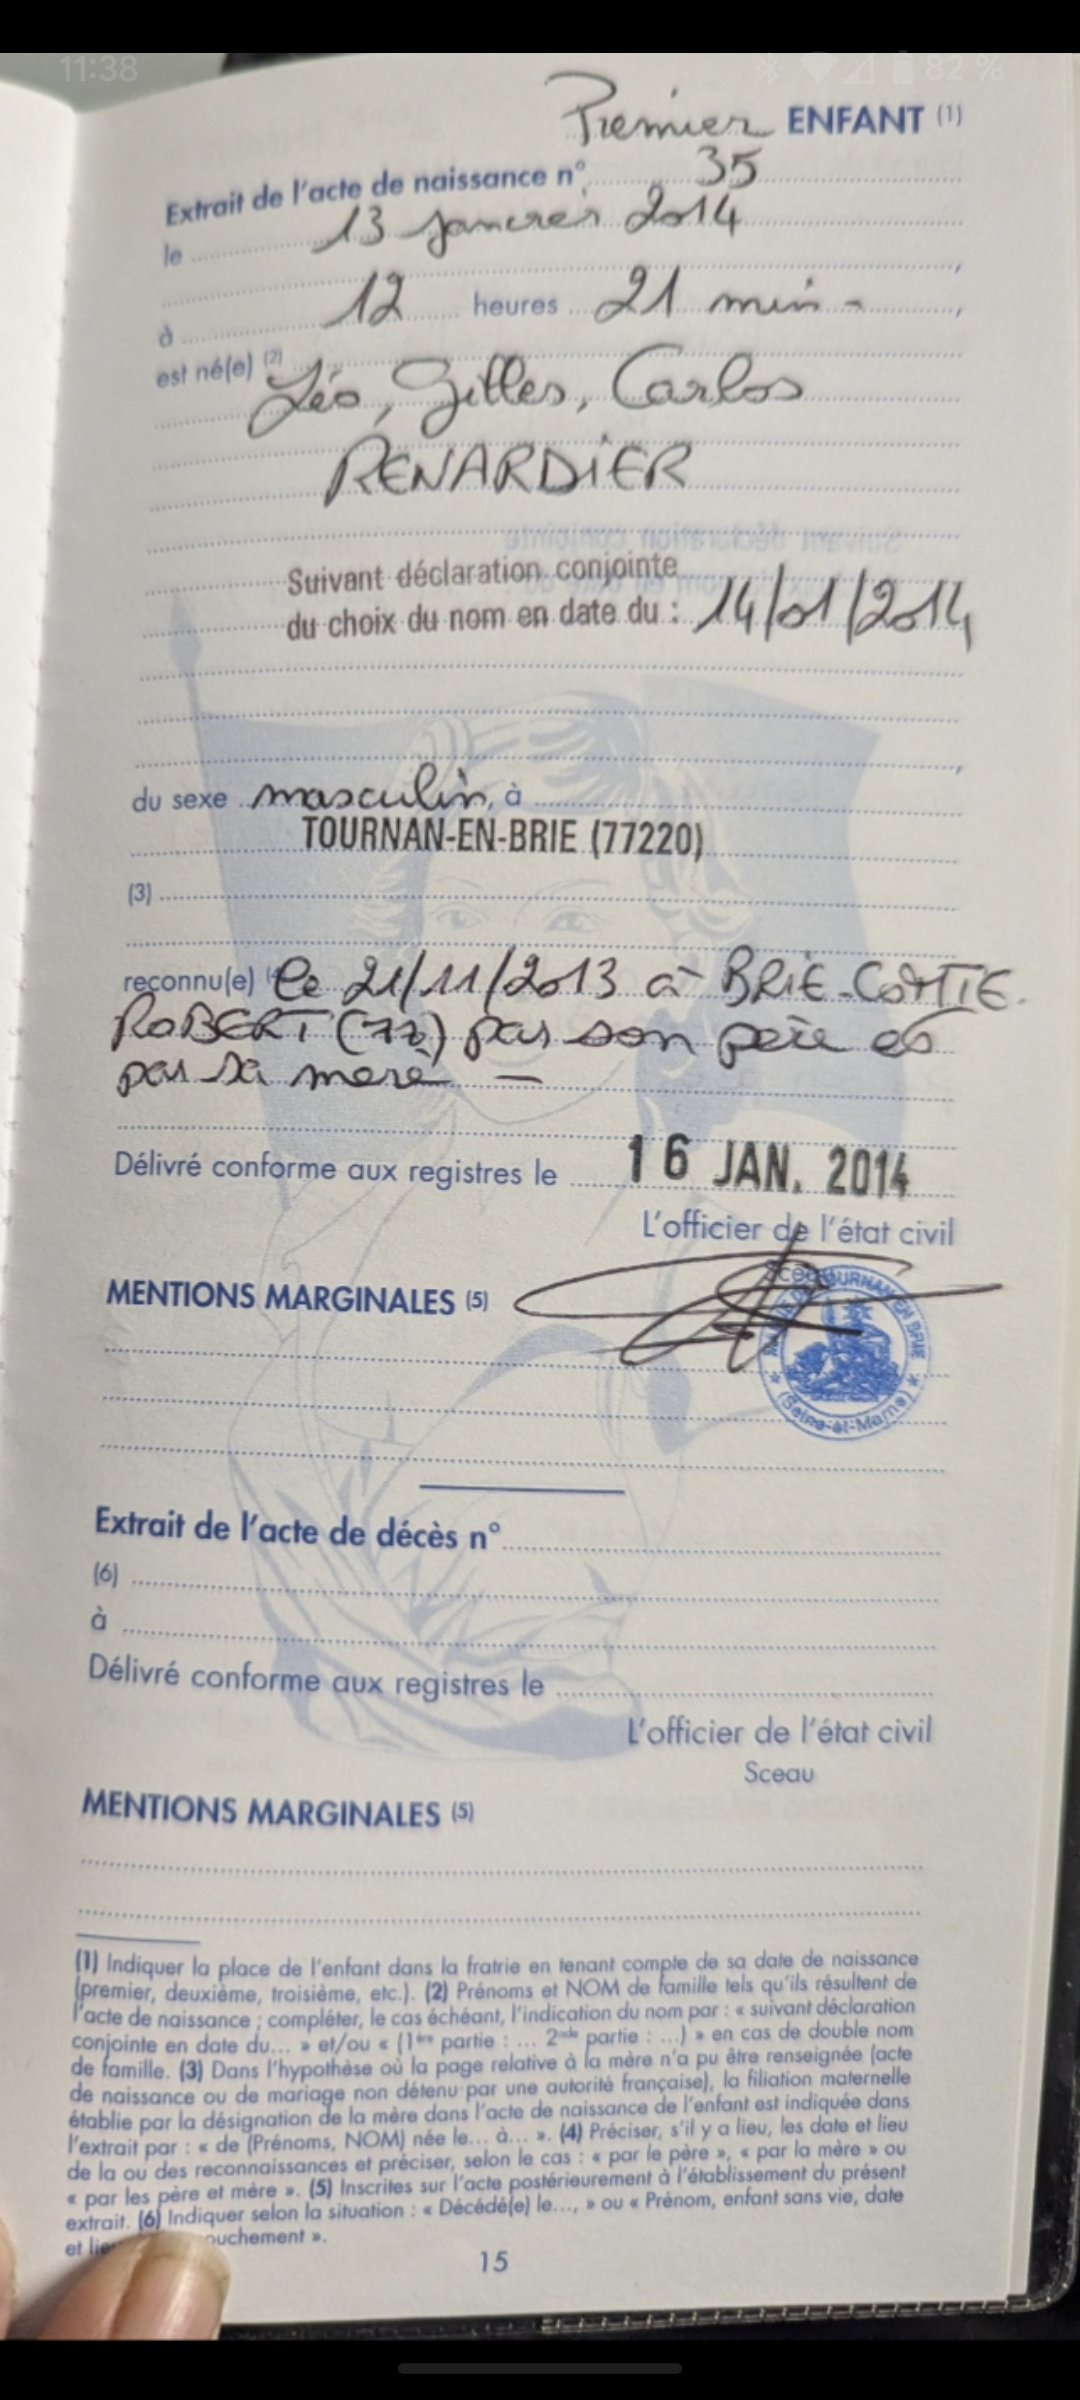 11:38 82 %
Premier ENFANT (1)
Extrait de l'acte de naissance n° 35
le 13 janvier 2014
,
à 12 heures 21 min - ,
est né(e) (2)
Léo, Gilles, Carlos
RENARDIER
Suivant déclaration conjointe
du choix du nom en date du : 14/01/2014
,
du sexe masculin, à
TOURNAN-EN-BRIE (77220)
(3)
reconnu(e) (4) le 21/11/2013 à BRIE-COMTE-
ROBERT (77) par son père et
par sa mère —
Délivré conforme aux registres le 16 JAN. 2014
L'officier de l'état civil
Sceau
MAIRIE DE TOURNAN EN BRIE
(Seine-et-Marne)
MENTIONS MARGINALES (5)
Extrait de l'acte de décès n°
(6)
à
Délivré conforme aux registres le
L'officier de l'état civil
Sceau
MENTIONS MARGINALES (5)
(1) Indiquer la place de l'enfant dans la fratrie en tenant compte de sa date de naissance
(premier, deuxième, troisième, etc.). (2) Prénoms et NOM de famille tels qu'ils résultent de
l'acte de naissance ; compléter, le cas échéant, l'indication du nom par : « suivant déclaration
conjointe en date du... » et/ou « (1ère partie : ... 2nde partie : ...) » en cas de double nom
de famille. (3) Dans l'hypothèse où la page relative à la mère n'a pu être renseignée (acte
de naissance ou de mariage non détenu par une autorité française), la filiation maternelle
établie par la désignation de la mère dans l'acte de naissance de l'enfant est indiquée dans
l'extrait par : « de (Prénoms, NOM) née le... à... ». (4) Préciser, s'il y a lieu, les date et lieu
de la ou des reconnaissances et préciser, selon le cas : « par le père », « par la mère » ou
« par les père et mère ». (5) Inscrites sur l'acte postérieurement à l'établissement du présent
extrait. (6) Indiquer selon la situation : « Décédé(e) le..., » ou « Prénom, enfant sans vie, date
et lie ouchement ».
15